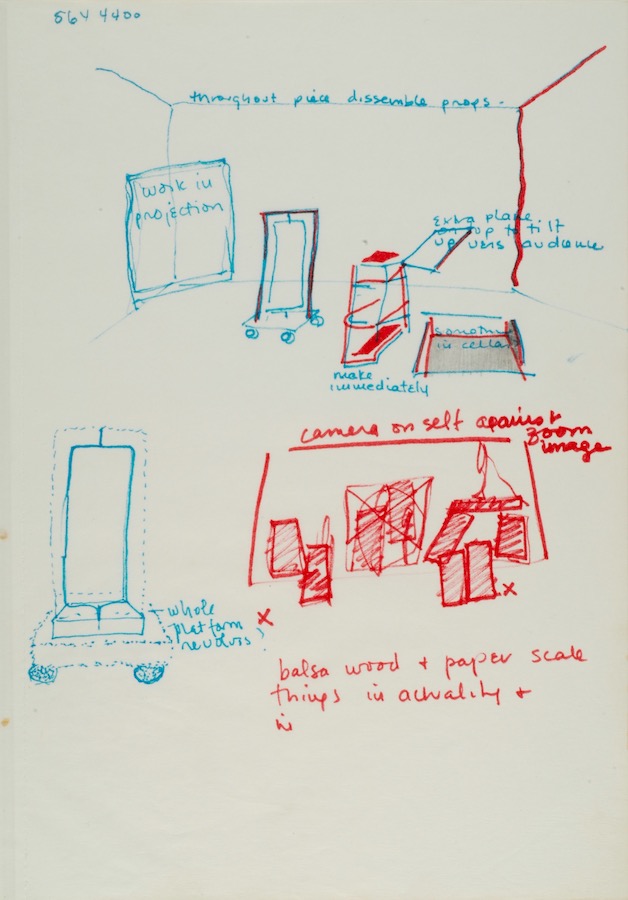 564 4400
throughout piece dissemble props.
work in
projection
extra plane
up to tilt
up vers audience
in cella
make
immediately
camera on self against
zoom
image
whole
platform
revolvs?
x
x
balsa wood + paper scale
things in actuality +
in